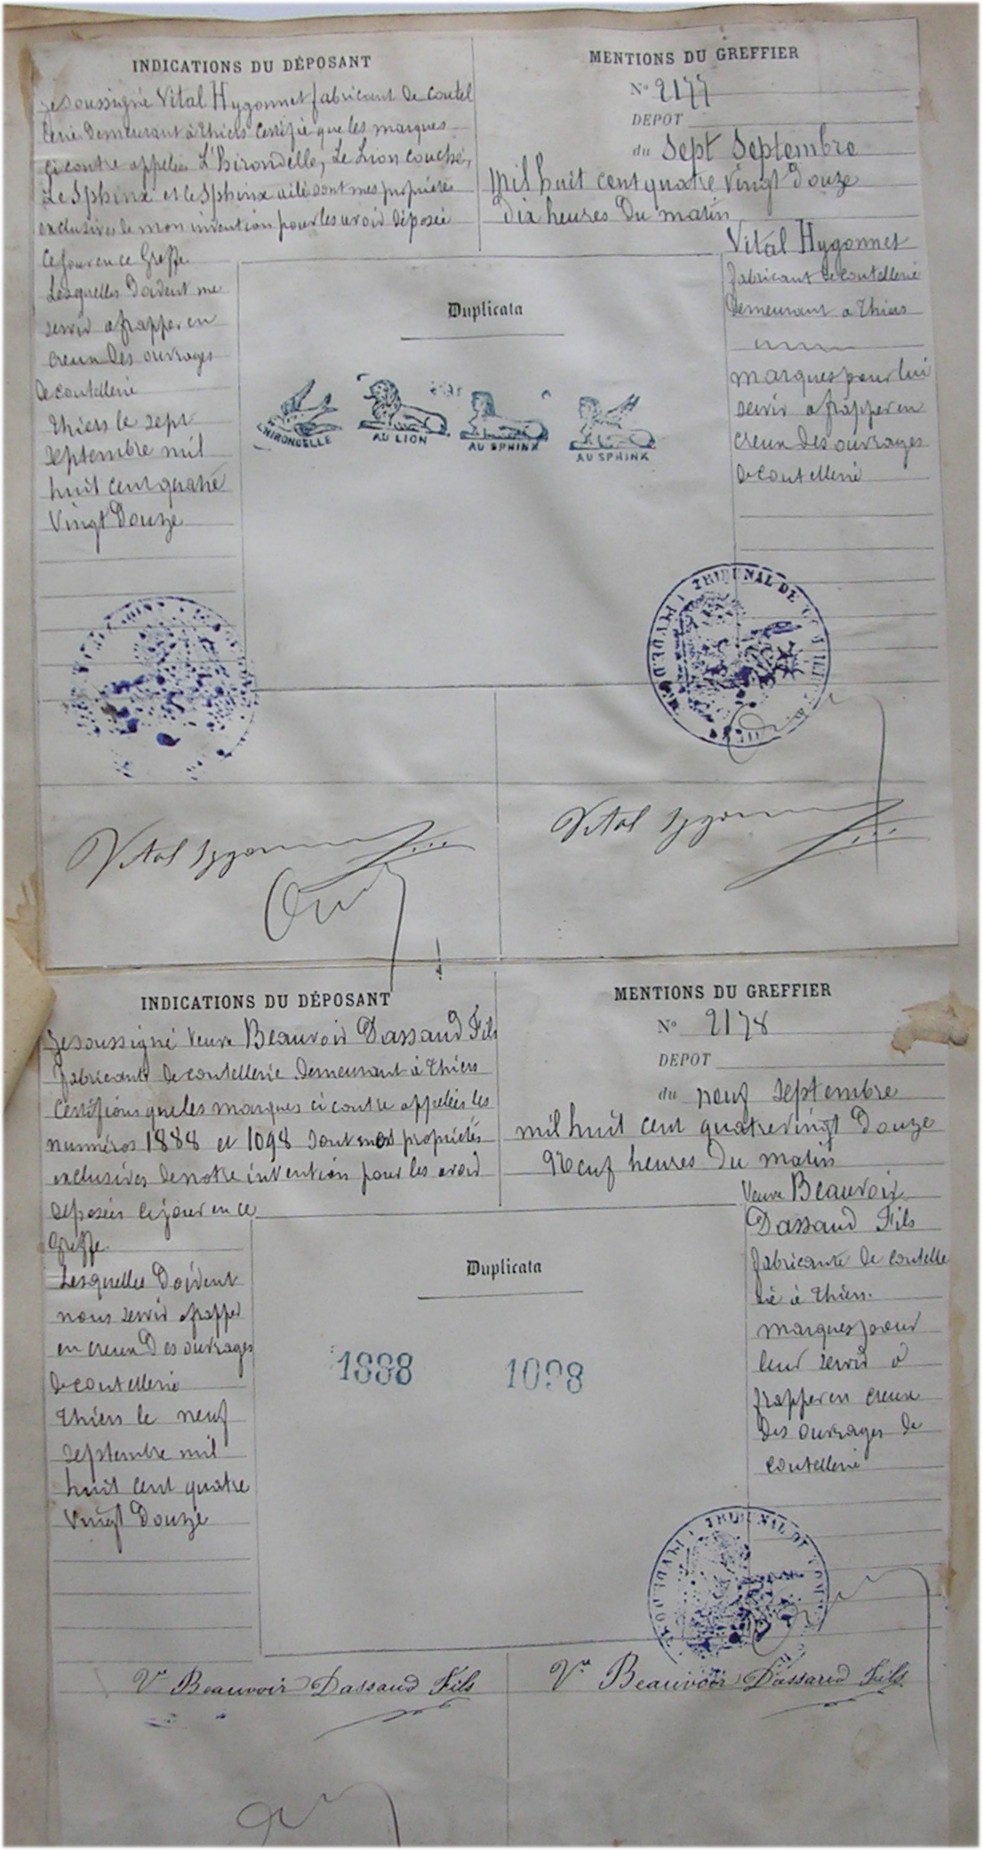 INDICATIONS DU DÉPOSANT
Je soussigné Vital Hygonnet fabricant de coutel
lerie demeurant à Thiers certifie que les marques
ci contre appelées L'hirondelle, Le Lion couché,
Le Sphinx et le Sphinx ailé sont mes propriétés
exclusives de mon invention pour les avoir déposée
ce jour en ce Greffe.
Lesquelles doivent me
servir a frapper en
creux des ouvrages
de coutellerie
Thiers le sept
septembre mil
huit cent quatre
Vingt Douze
MENTIONS DU GREFFIER
N° 2177
DEPOT
du Sept Septembre
Mil huit cent quatre vingt douze
Dix heures du matin
Vital Hygonnet
fabricant de coutellerie
demeurant a Thiers
marques pour lui
servir a frapper en
creux des ouvrages
de coutellerie
Duplicata
HIRONDELLE
AU LION
AU SPHINX
AU SPHINX
TRIBUNAL DE COMMERCE
PUY DE DOME
Vital Hygonnet
Vital Hygonnet
INDICATIONS DU DÉPOSANT
Je soussigné Veuve Beauvoir Dassaud Fils
fabricante de coutellerie demeurant à Thiers
certifions que les marques ci contre appelées les
numéros 1888 et 1098 sont nos propriétés
exclusives de notre invention pour les avoir
déposées ce jour en ce
Greffe.
Lesquelles doivent
nous servir a frapper
en creux des ouvrages
de coutellerie
Thiers le neuf
septembre mil
huit cent quatre
Vingt Douze
MENTIONS DU GREFFIER
N° 2178
DEPOT
du neuf septembre
mil huit cent quatre vingt Douze
Neuf heures du matin
Veuve Beauvoir
Dassaud Fils
fabricante de coutelle
rie à Thiers.
marques pour
leur servir à
frapper en creux
des ouvrages de
coutellerie
Duplicata
1888 1098
TRIBUNAL DE COM
PUY DE DOME
Vve Beauvoir Dassaud Fils
Vve Beauvoir Dassaud Fils